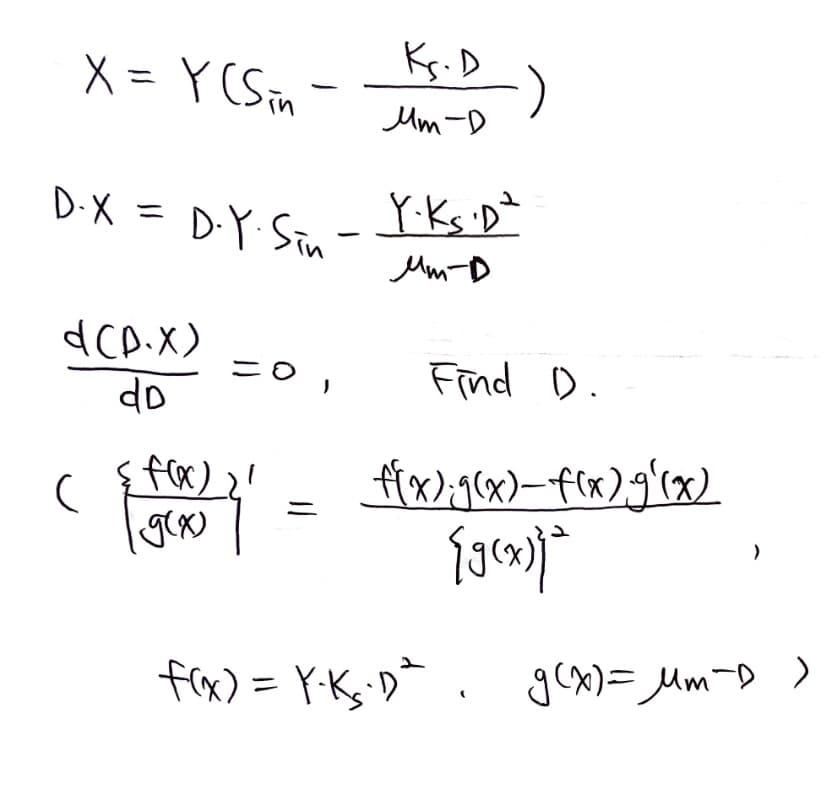 X = Y(Sin - Ks·D / μm-D)
D·X = D·Y·Sin - Y·Ks·D² / μm-D
d(D·X) / dD = 0, Find D.
( { f(x) / g(x) }' = f'(x)·g(x) - f(x)·g'(x) / {g(x)}² ,
f(x) = Y·Ks·D² . g(x) = μm-D )